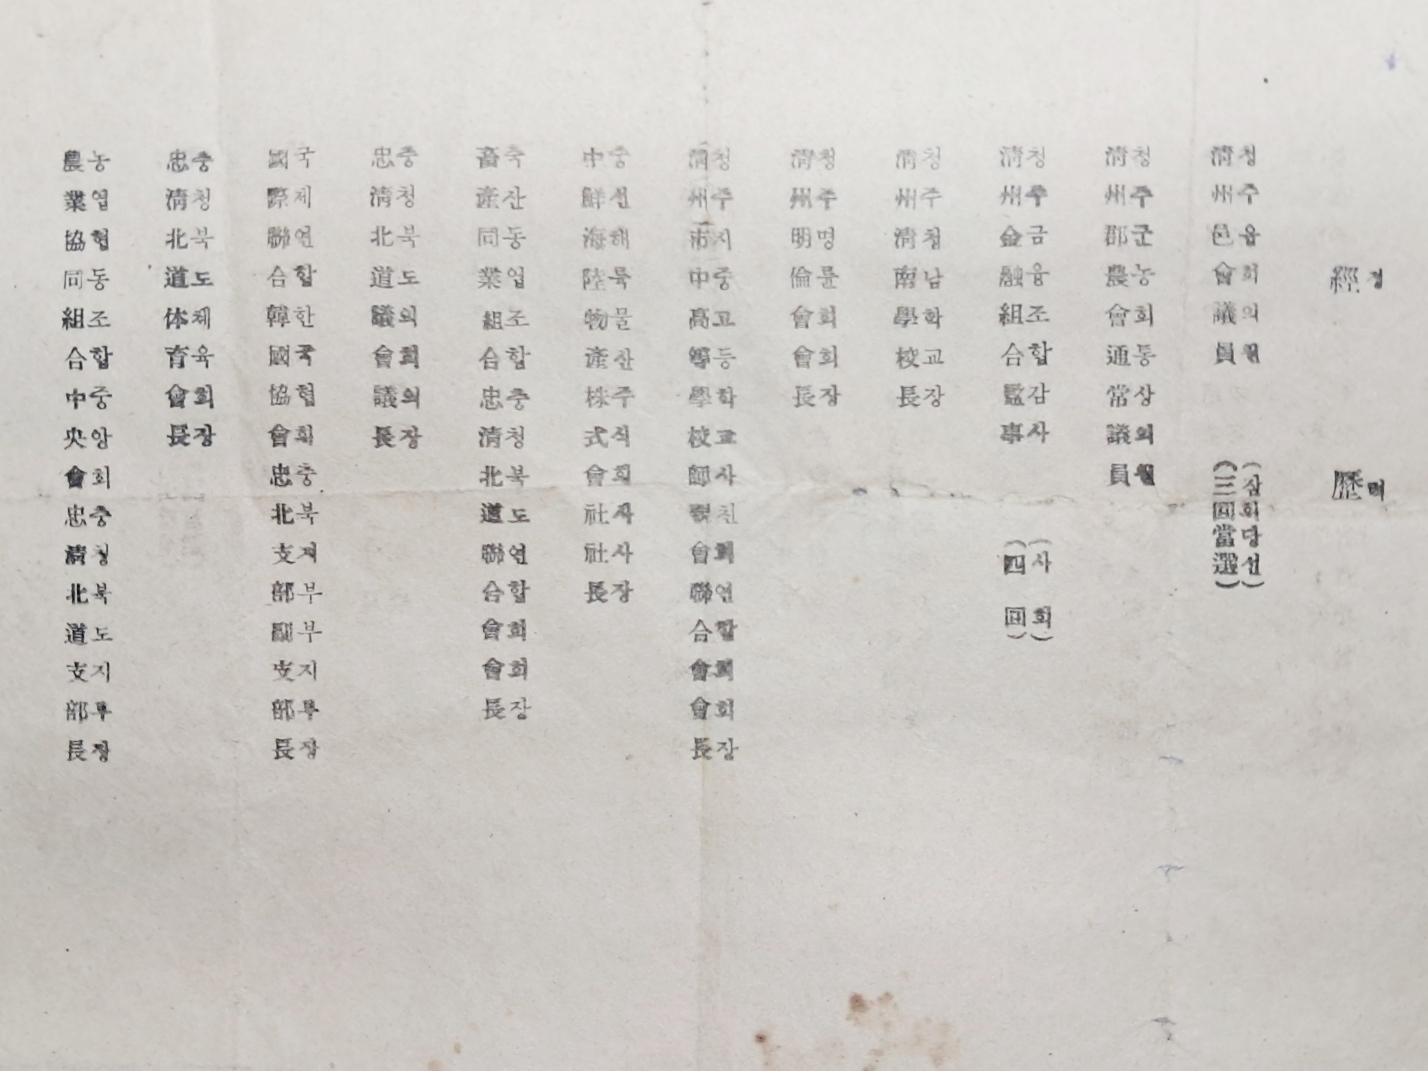 經歷
경력
淸州邑會議員 (三回當選)
청주읍회의원 (삼회당선)
淸州郡農會通常議員
청주군농회통상의원
淸州金融組合監事 (四回)
청주금융조합감사 (사회)
淸州淸南學校長
청주청남학교장
淸州明倫會會長
청주명륜회회장
淸州市中高等學校師親會聯合會會長
청주시중고등학교사친회연합회회장
中鮮海陸物産株式會社社長
중선해륙물산주식회사사장
畜産同業組合忠淸北道聯合會會長
축산동업조합충청북도연합회회장
忠淸北道議會議長
충청북도의회의장
國際聯合韓國協會忠北支部副支部長
국제연합한국협회충북지부부지부장
忠淸北道体育會長
충청북도체육회장
農業協同組合中央會忠淸北道支部長
농업협동조합중앙회충청북도지부장